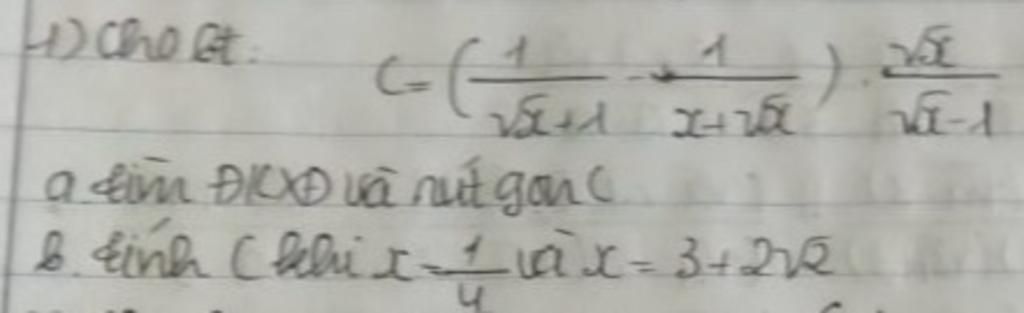 4) Cho Bt: C = (1/(√x+1) - 1/(x+√x)) . √x/(√x-1)
a tìm ĐKXĐ và rút gọn C
b. tính C khi x = 1/4 và x = 3+2√2